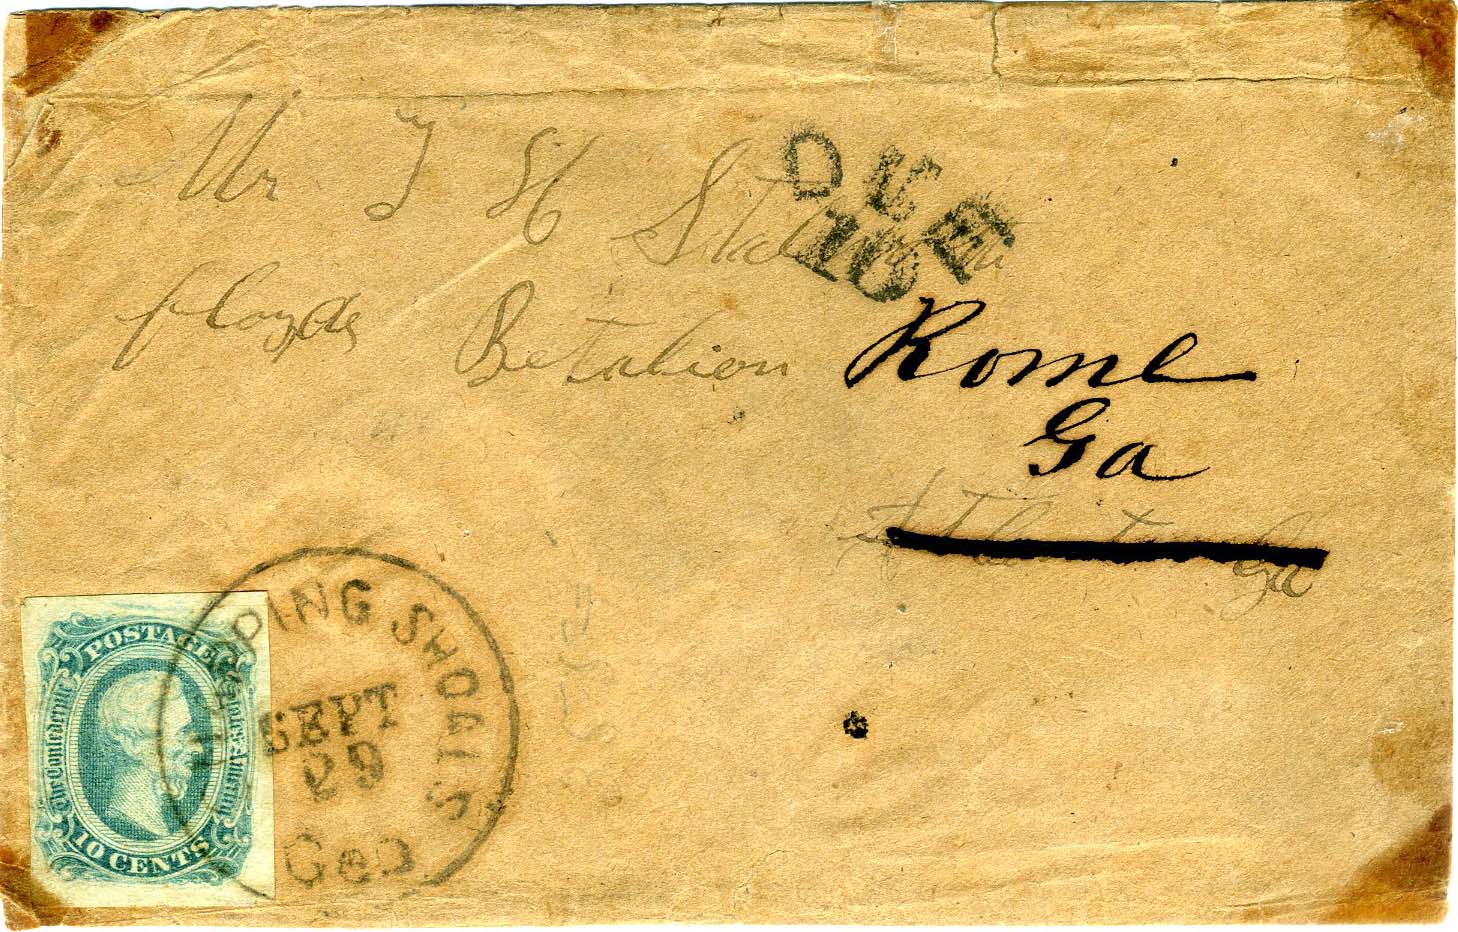 Mr T H
DUE
10
floyds Betalion Rome
Ga
Atlanta Ga
POSTAGE
The Confederate States of America
10 CENTS
SHOALS
SEPT
29
Geo